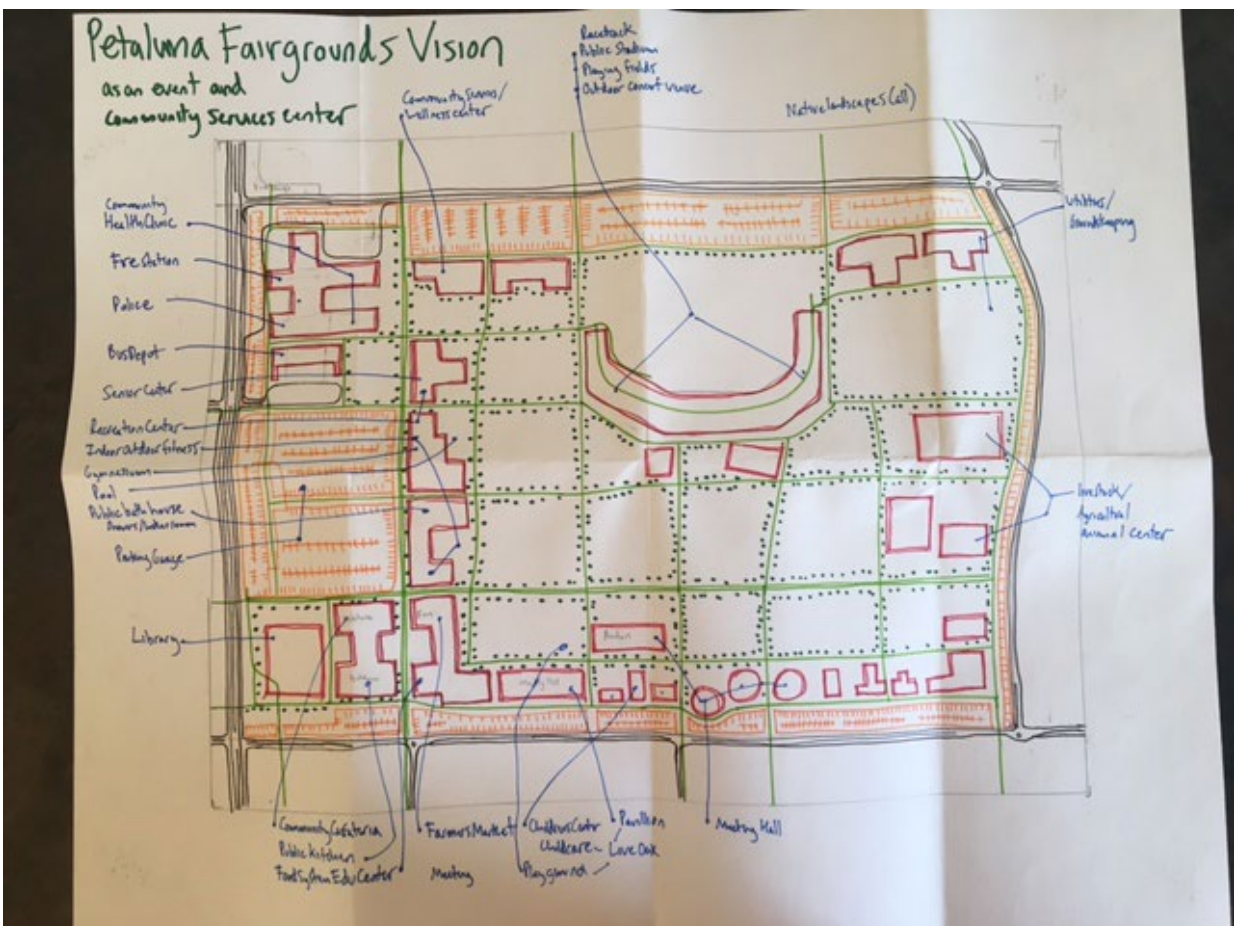 Petaluma Fairgrounds Vision
as an event and
community services center
Racetrack
Public Stadium
Playing fields
Outdoor concert venue
Native landscapes (all)
Wellness center
Community
Health Clinic
Fire Station
Police
Bus Depot
Senior Center
Recreation Center
Indoor outdoor fitness
Gymnasium
Pool
Public bath house
Parking Garage
Library
Utilities/
Groundskeeping
Livestock/
Agricultural
animal center
Community Cafeteria
Public Kitchen
Food System Edu Center
Farmers Market
Meeting
Childrens Center
Childcare
Playground
Pavilion
Live Oak
Meeting Hall